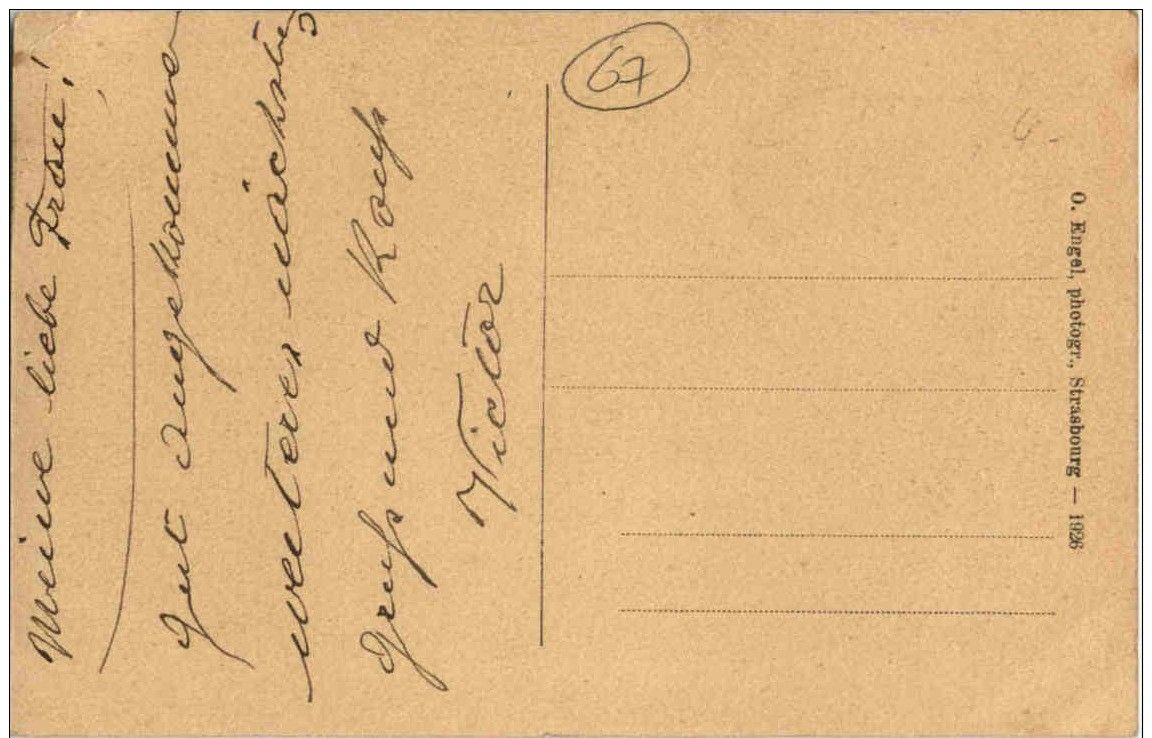 Meine liebe Frau!
Gut angekommen
weiteres nächstens
Gruß und Kuß
Victor
67
O. Engel, photogr., Strasbourg — 1926